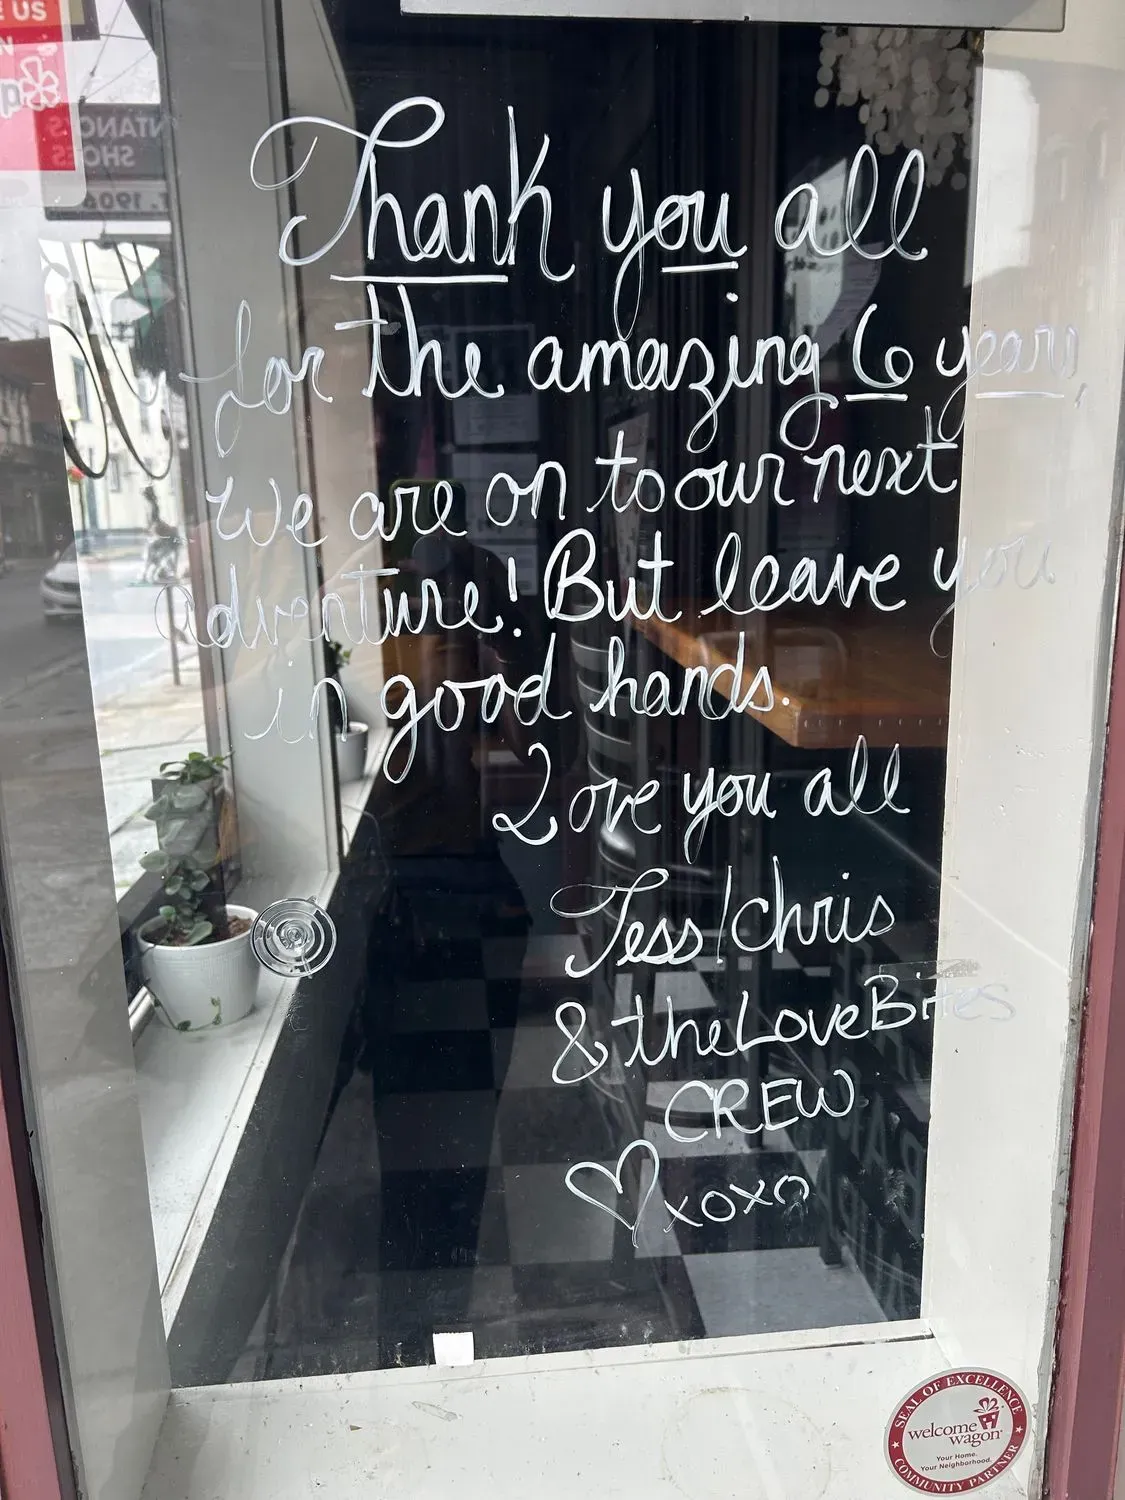 E US
N
Thank you all
for the amazing 6 years,
We are on to our next
adventure! But leave you
in good hands.
Love you all
Tess/Chris
& the LoveBites
CREW
xoxo
SEAL OF EXCELLENCE
welcome
wagon
Your Home.
Your Neighborhood.
COMMUNITY PARTNER
NTANO'S
SHOES
T. 1906